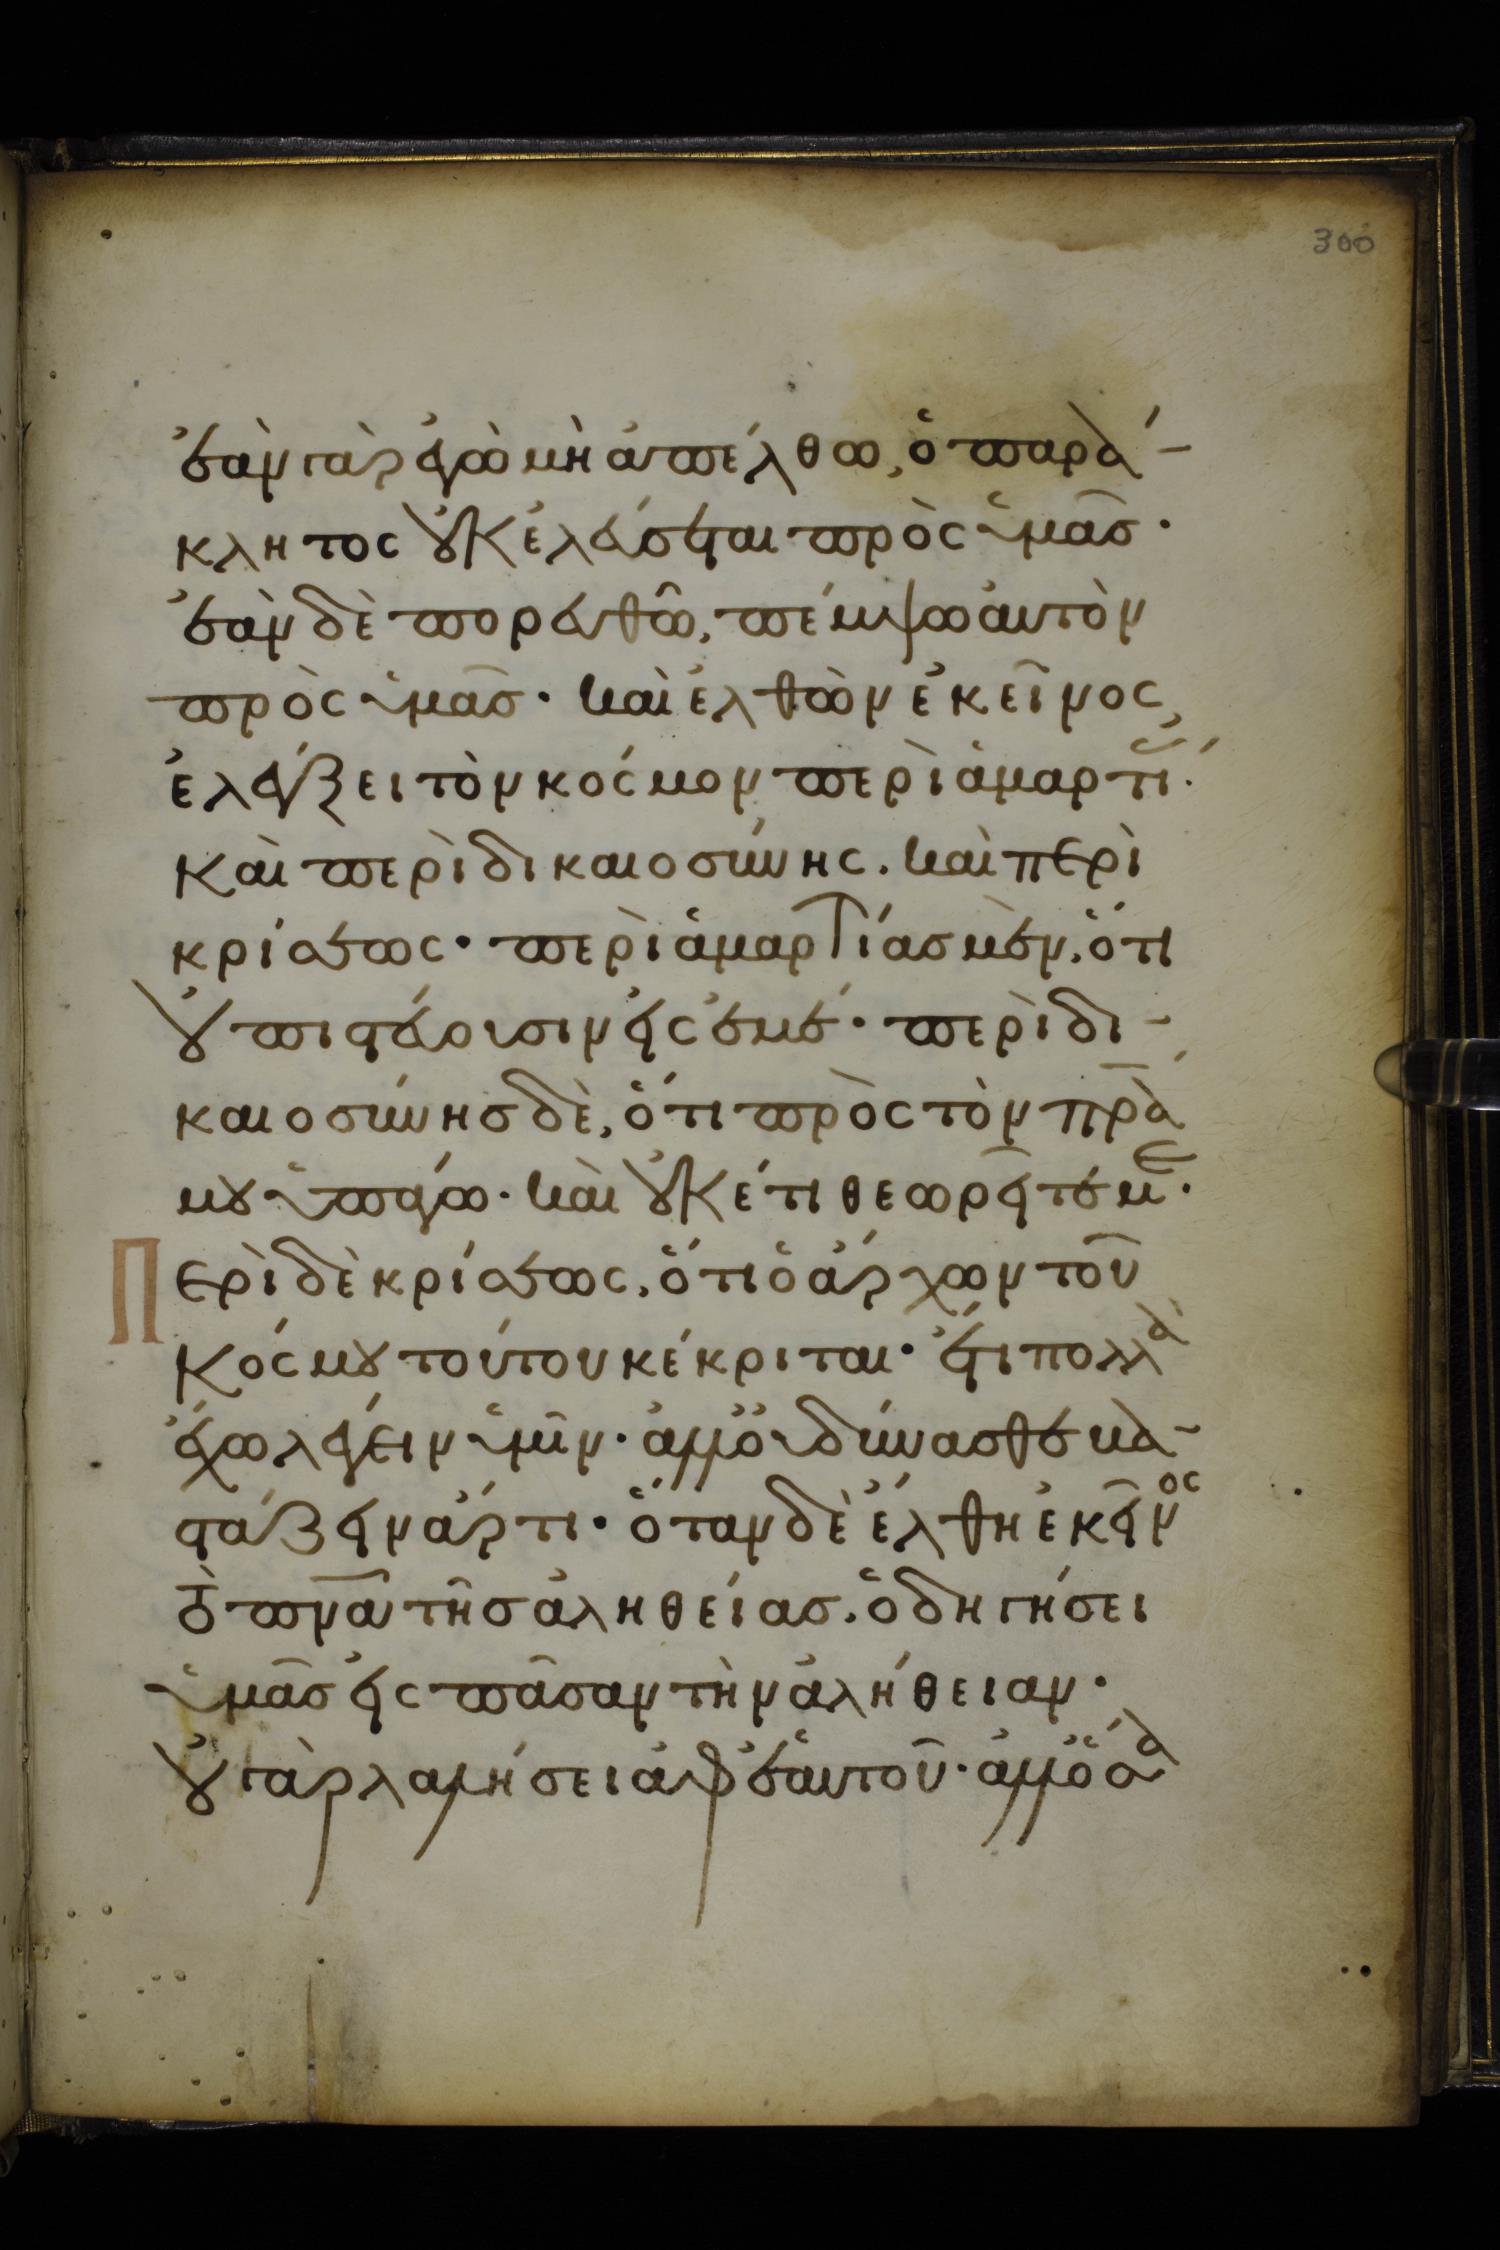 300
ἐὰν γὰρ ἐγὼ μὴ ἀπέλθω, ὁ παρά-
κλητος οὐκ ἐλεύσεται πρὸς ὑμᾶσ·
ἐὰν δὲ πορευθῶ, πέμψω αὐτὸν
πρὸς ὑμᾶσ· καὶ ἐλθὼν ἐκεῖνος,
ἐλέγξει τὸν κόσμον περὶ ἁμαρτι
καὶ περὶ δικαιοσύνης. καὶ περὶ
κρίσεως· περὶ ἁμαρτίασ μὲν, ὅτι
οὐ πιστεύουσιν εἰς ἐμέ· περὶ δι-
καιοσύνησ δὲ, ὅτι πρὸς τὸν πρα
μου ὑπάγω· καὶ οὐκέτι θεωρεῖτέ με·
Περὶ δὲ κρίσεως, ὅτι ὁ ἄρχων τοῦ
κόσμου τούτου κέκριται· ἔτι πολλὰ
ἔχω λέγειν ὑμῖν· ἀλλ' οὐ δύνασθε βα-
στάζειν ἄρτι· ὅταν δὲ ἔλθη ἐκεῖνος
τὸ πνα τῆσ ἀληθείασ, ὁδηγήσει
ὑμᾶσ εἰς πᾶσαν τὴν ἀλήθειαν·
οὐ γὰρ λαλήσει ἀφ' ἑαυτοῦ· ἀλλ' ὅσα